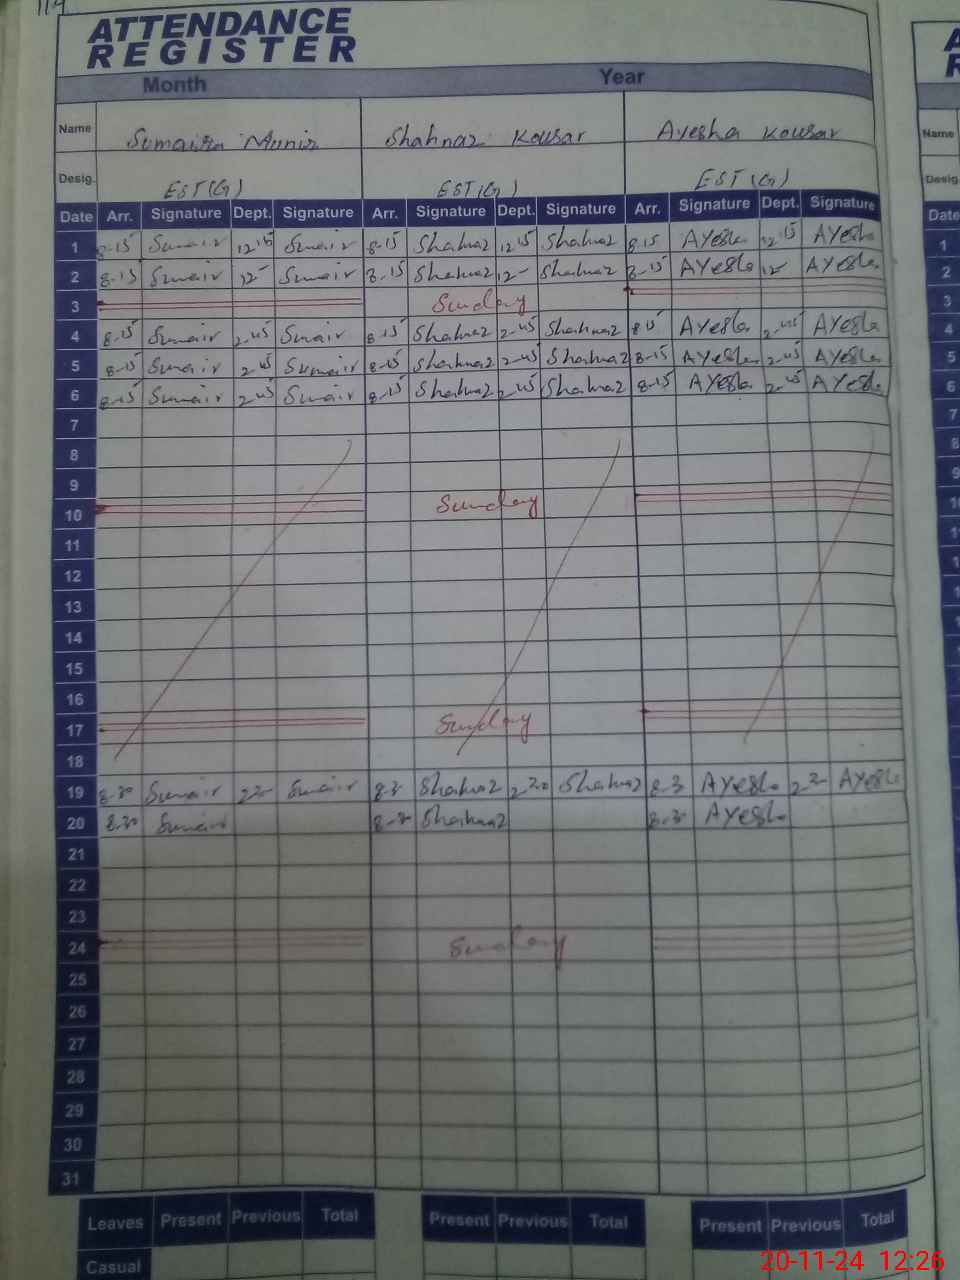 114
ATTENDANCE
REGISTER
Month Year
Name Sumaira Munir Shahnaz Kousar Ayesha Kousar
Desig. EST(G) EST(G) EST(G)
Date Arr. Signature Dept. Signature Arr. Signature Dept. Signature Arr. Signature Dept. Signature Date
1 8-15 Sumair 12 15 Sumair 8-15 Shahnaz 12 15 Shahnaz 8 15 AYesha 12 15 AYesha 1
2 8-15 Sumair 12- Sumair 8-15 Shahnaz 12- Shahnaz 8-15 AYesha 12- AYesha 2
3 Sunday 3
4 8-15 Sumair 2-45 Sumair 8 15 Shahnaz 2-45 Shahnaz 8 15 AYesha 2-45 AYesha 4
5 8-15 Sumair 2 45 Sumair 8-15 Shahnaz 2-45 Shahnaz 8-15 AYesha 2-45 AYesha 5
6 8-15 Sumair 2-45 Sumair 8-15 Shahnaz 2-45 Shahnaz 8-15 AYesha 2-45 AYesha 6
7 7
8 8
9 9
10 Sunday 10
11
12
13
14
15
16
17 Sunday
18
19 8-30 Sumair Sumair 8-3 Shahnaz 2 30 Shahnaz 8-3 AYesha AYesha
20 8-30 Sumair 8-3 Shahnaz 8-3 AYesha
21
22
23
24 Sunday
25
26
27
28
29
30
31
Leaves Present Previous Total Present Previous Total Present Previous Total
Casual
20-11-24 12:26